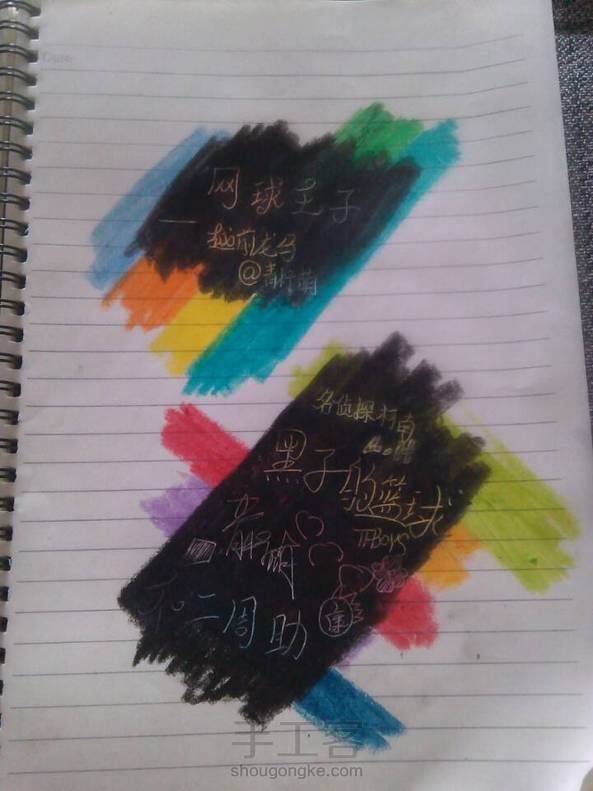 网球王子
越前龙马
@青柠萌
名侦探柯南
黑子的篮球
TFBoys
不二周助
手工客
shougongke.com